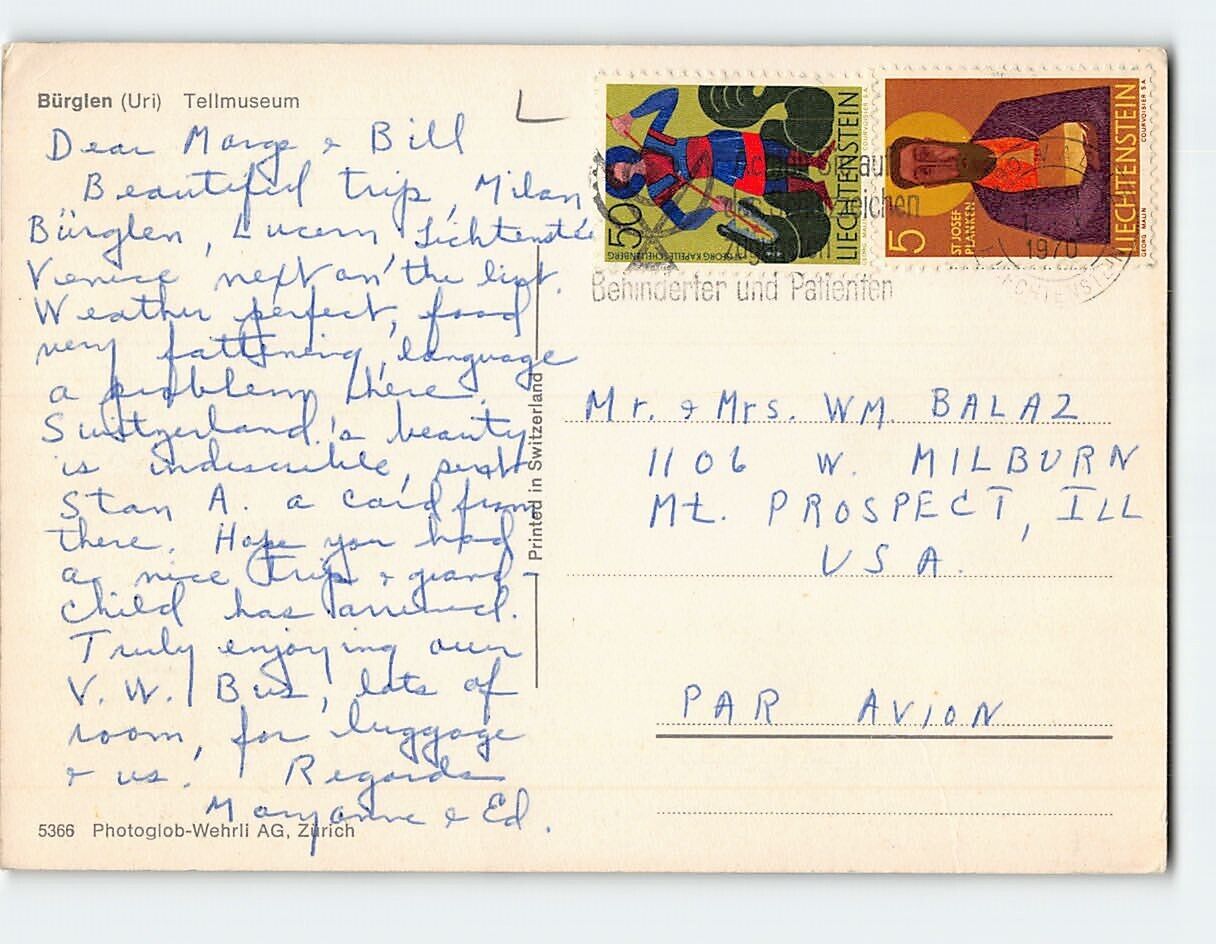 Bürglen (Uri) Tellmuseum
Dear Marge & Bill
Beautiful trip, Milan
Bürglen, Lucern, Lichtenstie
Venice next on the list.
Weather perfect, food
very fattening, language
a problem there.
Switzerland's beauty
is indescrible, sent
Stan A. a card from
there. Hope you had
a nice trip & grand-
child has arrived.
Truly enjoying our
V.W. Bus, lots of
room, for luggage
& us! Regards
Maryanne & Ed.
5366 Photoglob-Wehrli AG, Zürich
Printed in Switzerland
L
50
ST. GEORG KAPELLE SCHELLENBERG
LIECHTENSTEIN
COURVOISIER S.A.
5
ST JOSEF
PLANKEN
LIECHTENSTEIN
GEORG MALIN COURVOISIER S.A.
1970
LIECHTENSTEIN
Behinderter und Patienten
Mr. & Mrs. WM. BALAZ
1106 W. MILBURN
Mt. PROSPECT, ILL
USA.
PAR AVION